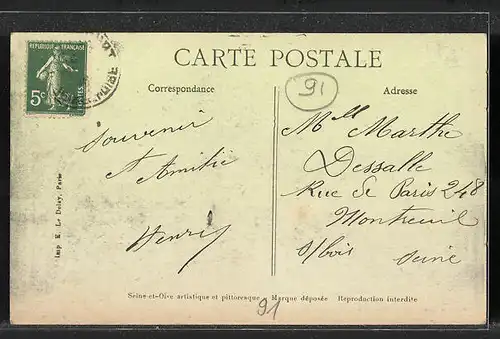 CARTE POSTALE
REPUBLIQUE FRANÇAISE
5c
POSTES
Correspondance
91
Adresse
Souvenir
d'Amitié
Henri
Mlle Marthe
Dessalle
Rue de Paris 248
Montreuil
s/bois Seine
Imp E. Le Deley, Paris
Seine-et-Oise artistique et pittoresque Marque déposée Reproduction interdite
91